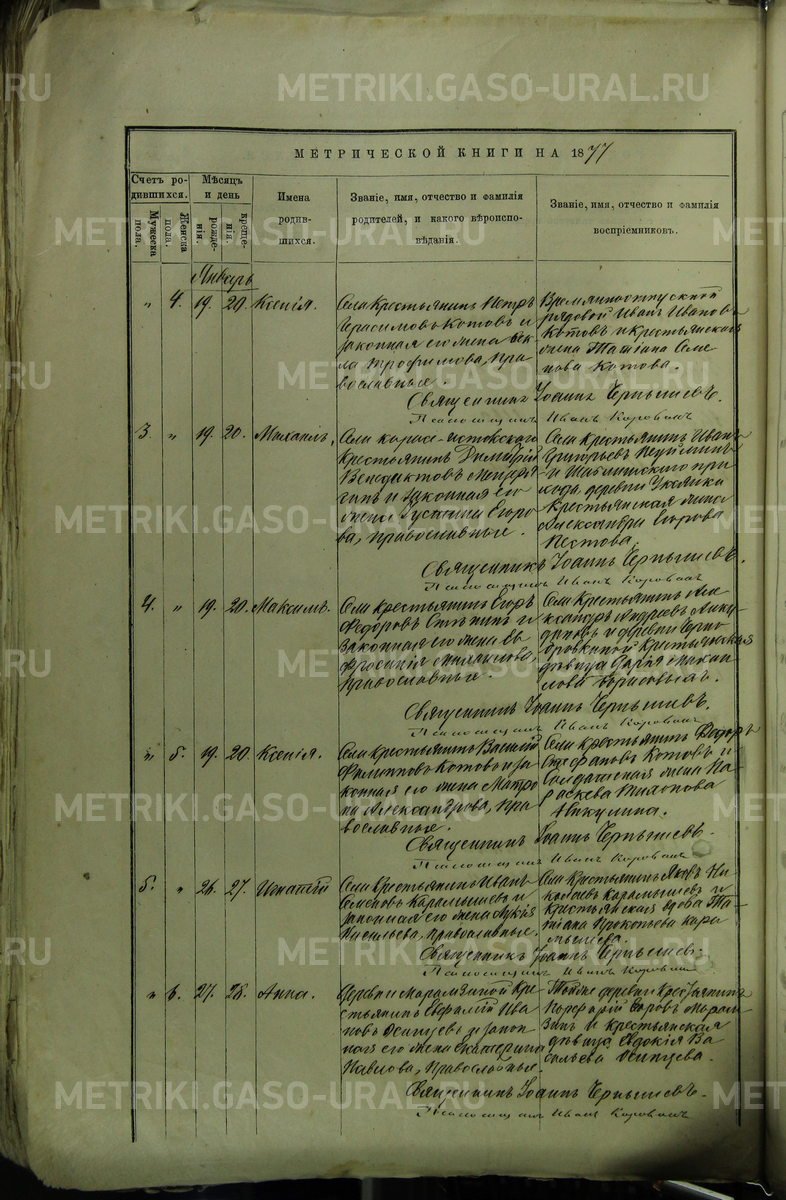 METRIKI.GASO-URAL.RU
МЕТРИЧЕСКОЙ КНИГИ НА 1877
Счетъ родившихся.
Мужеска пола.
Женска пола.
Мѣсяцъ и день
рожденія.
крещенія.
Имена родившихся.
Званіе, имя, отчество и фамилія родителей, и какого вѣроисповѣданія.
Званіе, имя, отчество и фамилія воспріемниковъ.
Январь
„ 4. 19. 20. Ксенія.
Села крестьянинъ Петръ
Герасимовъ Котовъ и
законная его жена Ѳек-
ла Трофимова, пра-
вославные.
Временноотпускной
рядовой Иванъ Ивановъ
Котовъ и крестьянская
жена Татіана Семе-
нова Котова.
Священникъ Іоаннъ Чернышевъ.
Псаломщикъ Иванъ Коровинъ
3. „ 19. 20. Михаилъ,
Села
крестьянинъ Димитрій
Венедиктовъ
и законная его
жена Егоро-
ва, православные.
Села крестьянинъ Иванъ
Григорьевъ
и при-
хода, деревни
крестьянская жена
Александра Егорова
Пестова.
Священникъ Іоаннъ Чернышевъ.
Псаломщикъ Иванъ Коровинъ
4. „ 19. 20. Максимъ.
Села крестьянинъ Егоръ
Федоровъ и
законная его жена Ев-
фросинія
православные.
Села крестьянинъ Але-
ксандръ Андреевъ
и деревни
крестьянская
дѣвица Дарья Михай-
лова Борисовыхъ.
Священникъ Іоаннъ Чернышевъ.
Псаломщикъ Иванъ Коровинъ
„ 5. 19. 20. Ксенія.
Села крестьянинъ Василій
Филипповъ Котовъ и за-
конная его жена Матро-
на Александрова, пра-
вославные.
Села крестьянинъ Ѳедоръ
Стефановъ Котовъ и
солдатская жена Па-
раскева
Аникина.
Священникъ Іоаннъ Чернышевъ.
Псаломщикъ Иванъ Коровинъ
5. „ 26. 27. Игнатій
Села крестьянинъ Иванъ
Семеновъ Карамышевъ и
законная его жена Лукія
Васильева, православные.
Села крестьянинъ Яковъ Ни-
колаевъ Карамышевъ и
крестьянская вдова Та-
тіана Прокопьева Кара-
мышева.
Священникъ Іоаннъ Чернышевъ.
Псаломщикъ Иванъ Коровинъ
„ 6. 27. 28. Анна.
Деревни Марамзиной кре-
стьянинъ Евфимій Ива-
новъ Осинцевъ и закон-
ная его жена Екатерина
Павлова, православные.
Тойже деревни крестьянинъ
Порфирій Марам-
зинъ и крестьянская
дѣвица Евдокія Ва-
сильева Осинцева.
Священникъ Іоаннъ Чернышевъ.
Псаломщикъ Иванъ Коровинъ